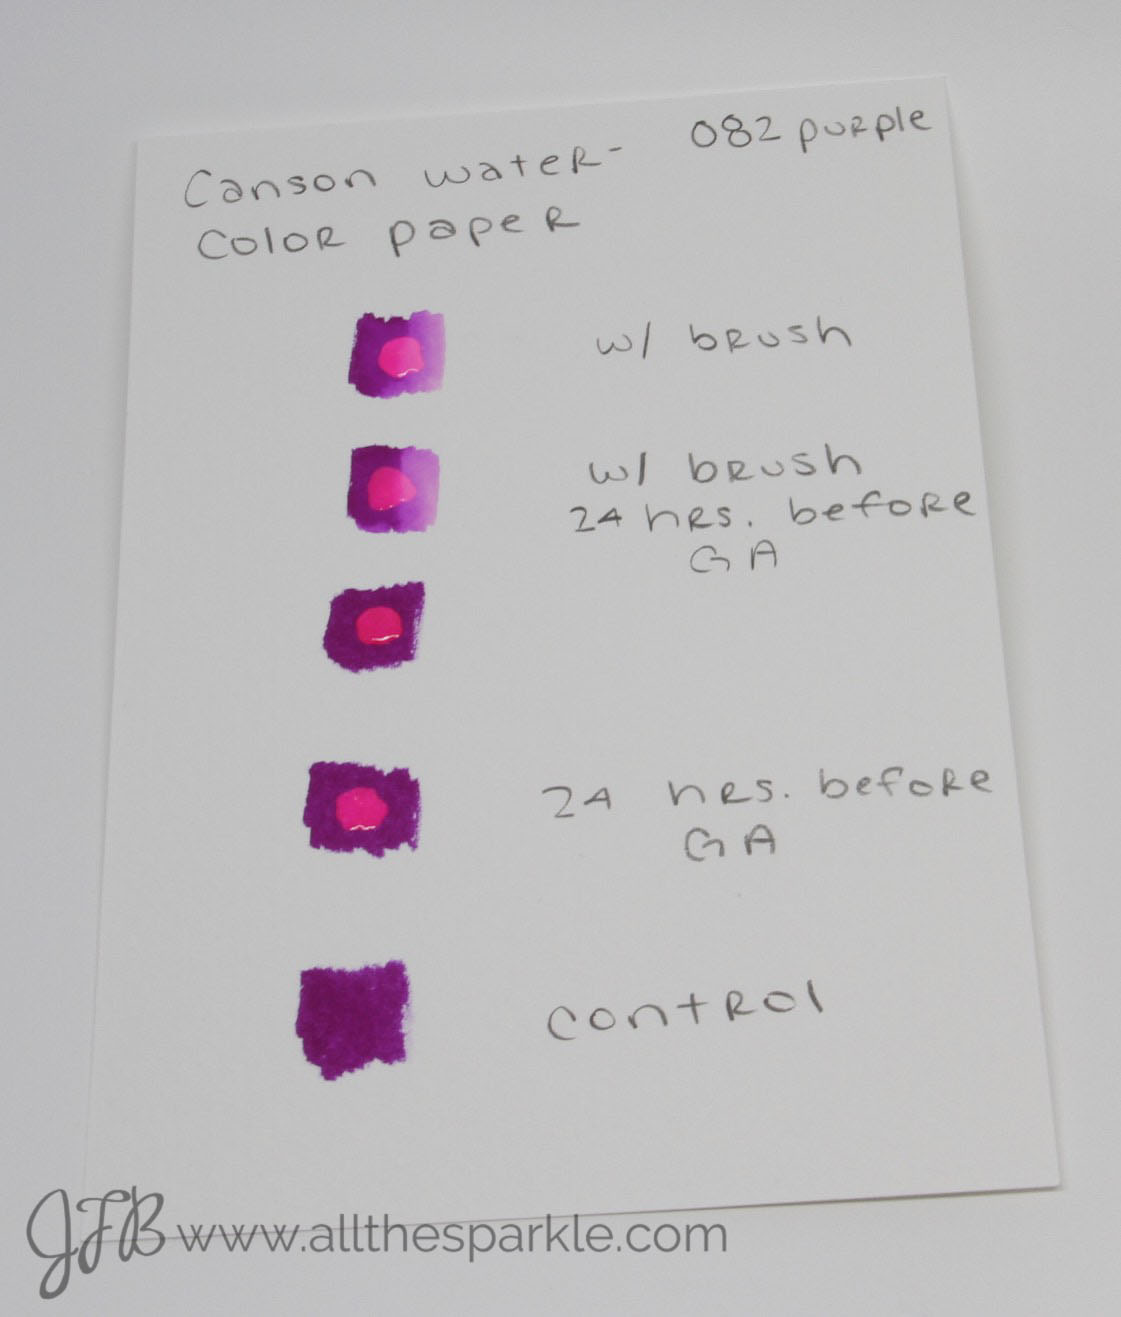 Canson water- 082 purple
Color paper
w/ brush
w/ brush
24 hrs. before
GA
24 hrs. before
GA
control
JFB www.allthesparkle.com